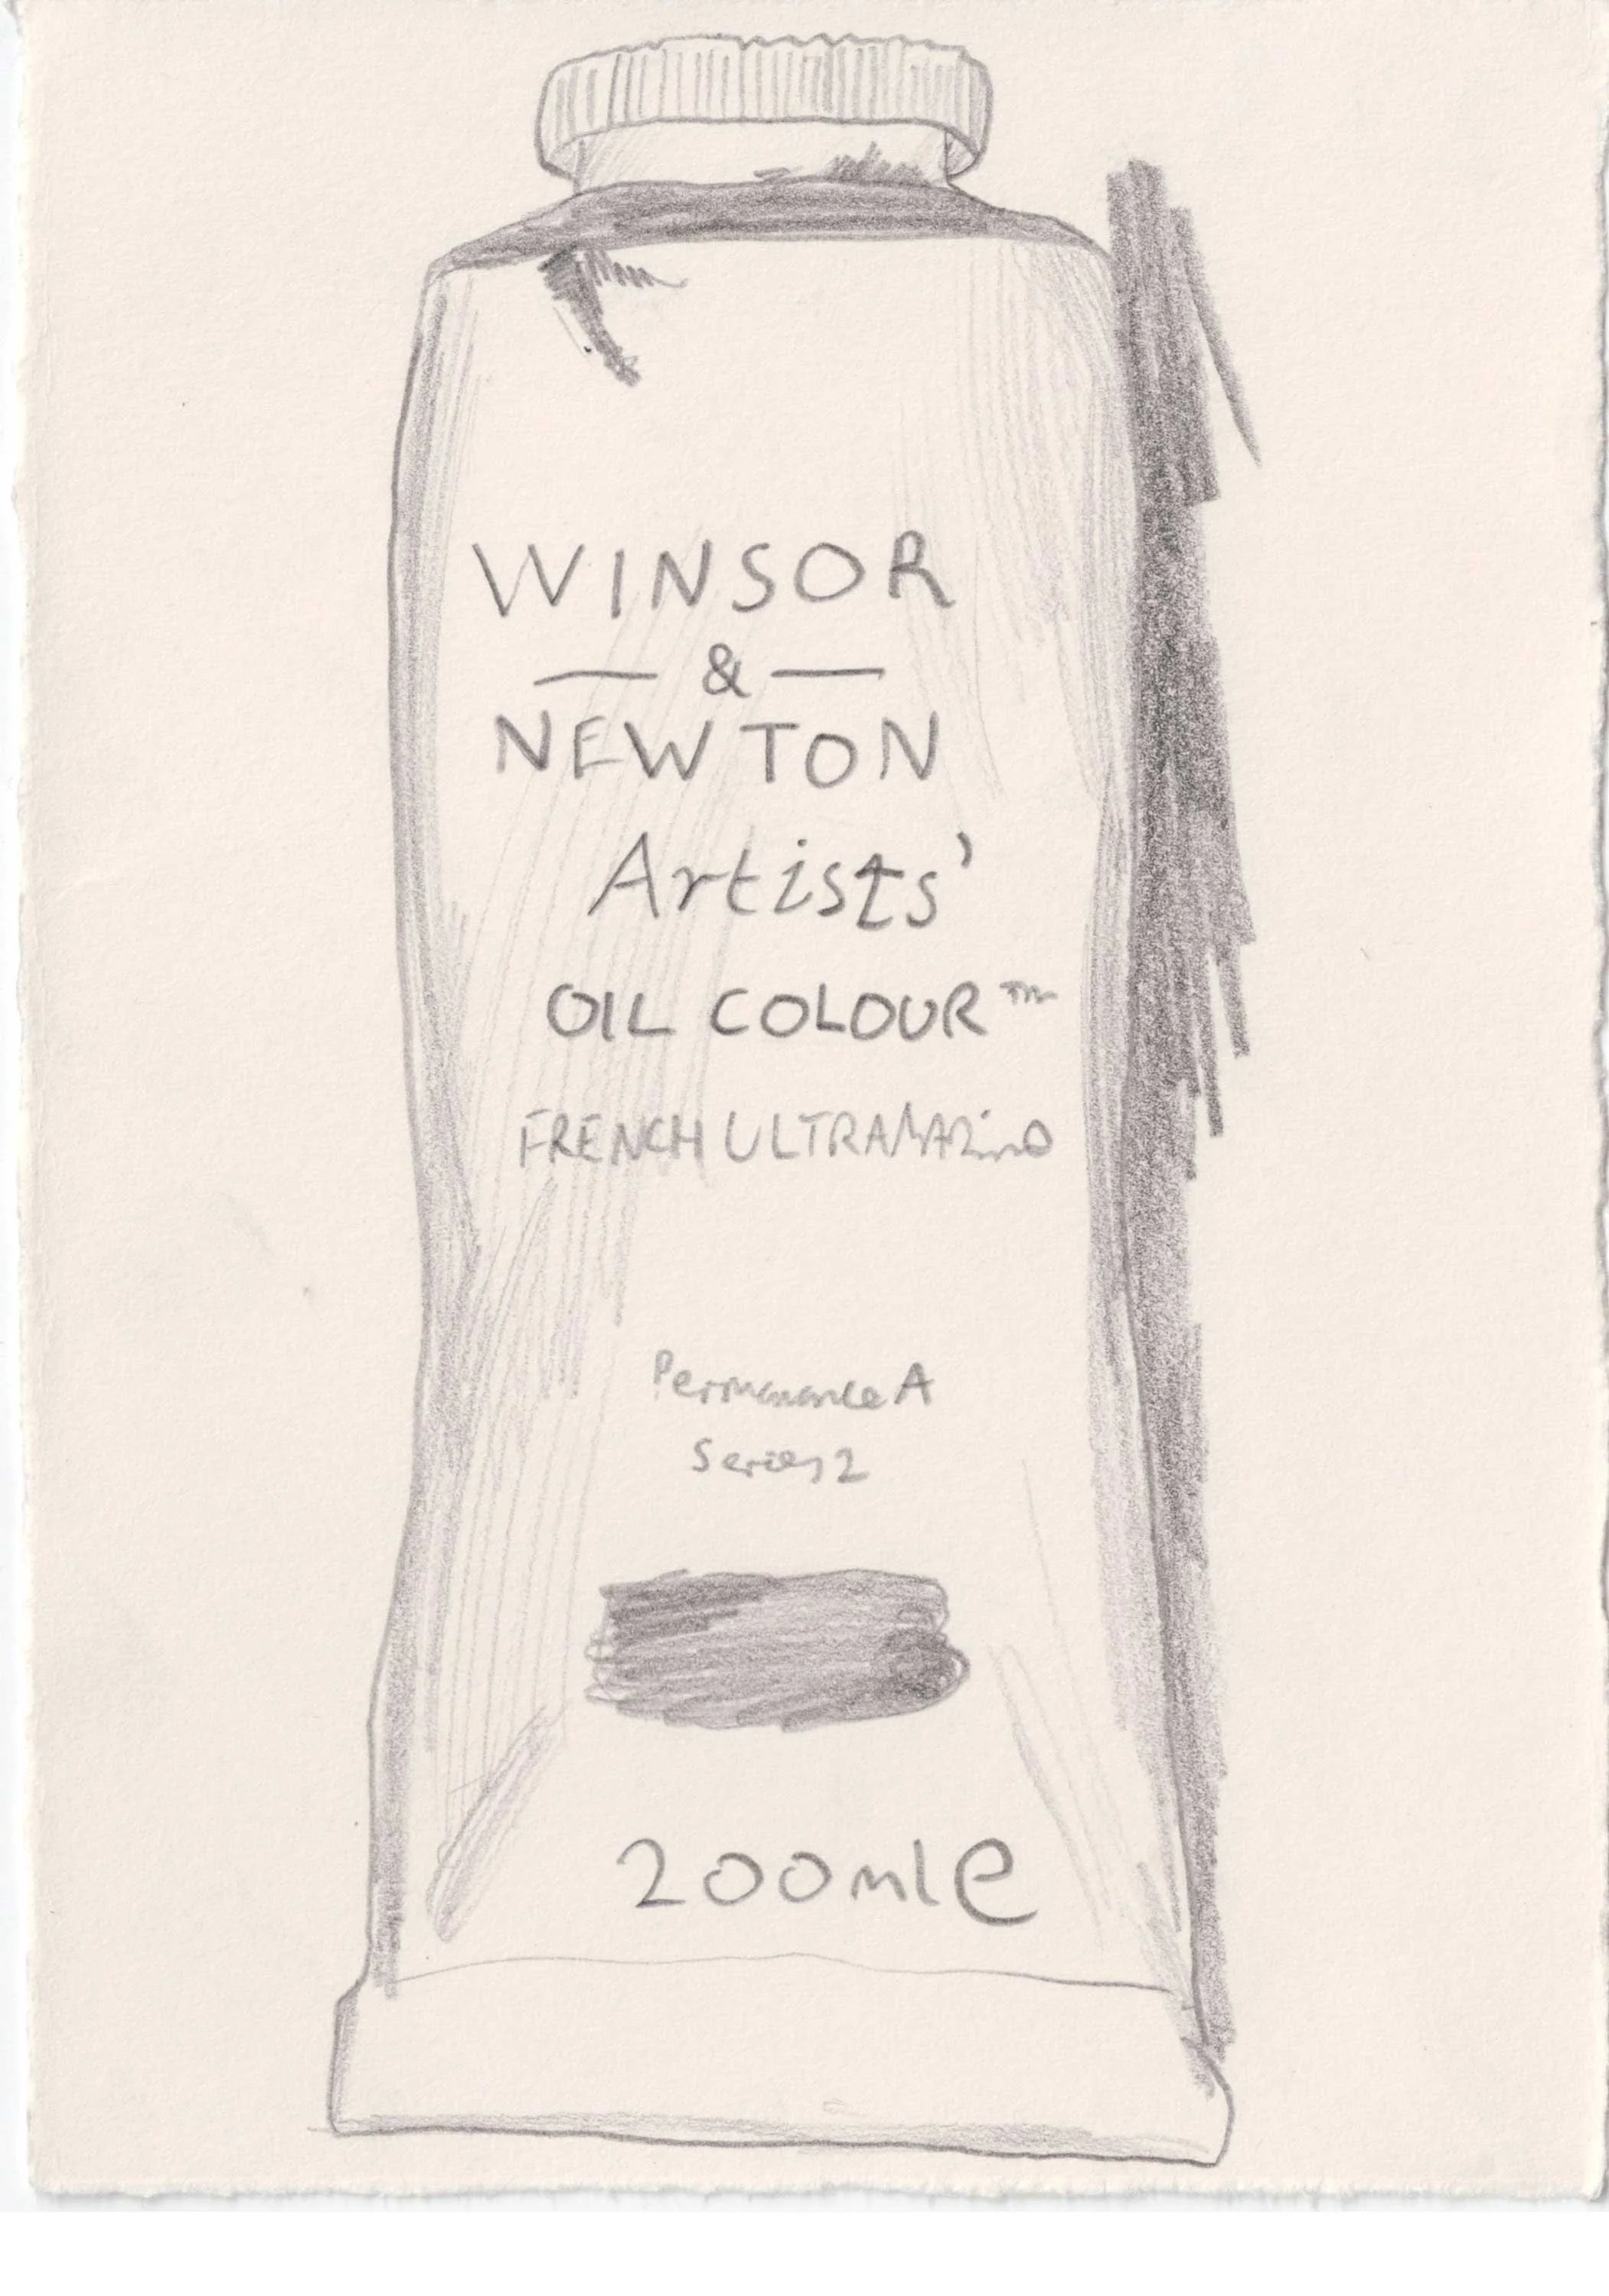 WINSOR
&
NEWTON
Artists'
OIL COLOUR™
FRENCH ULTRAMARINE
Permanence A
Series 2
200ml e